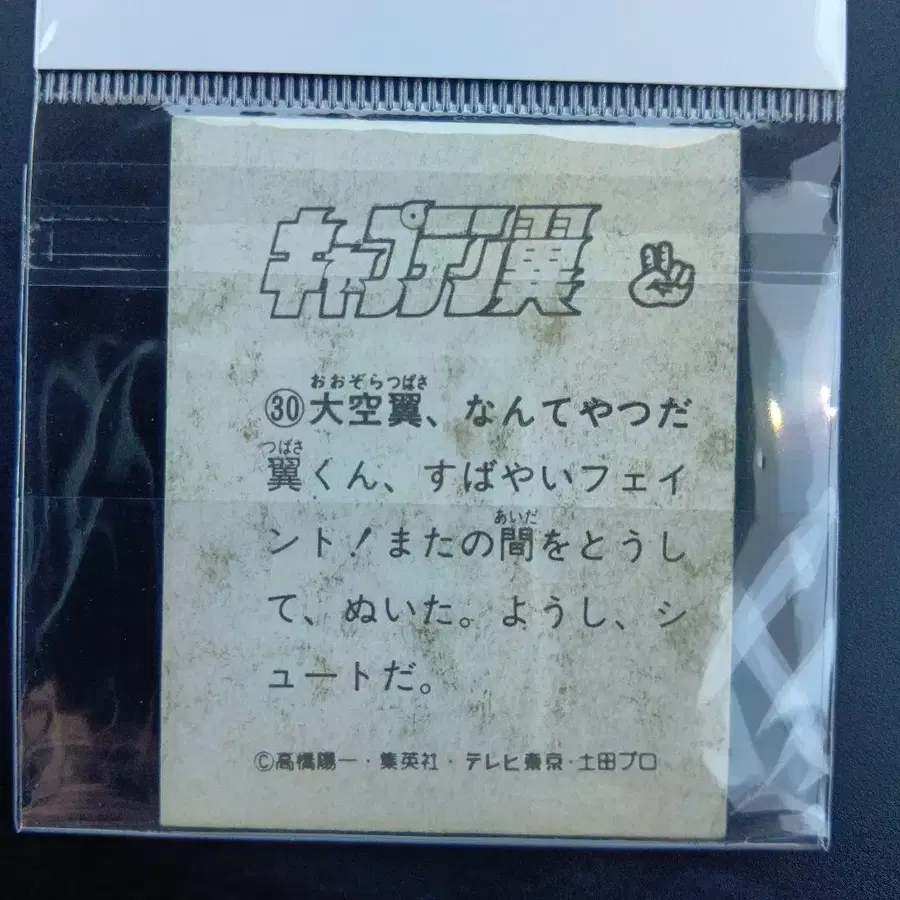 キャプテン翼
おおぞらつばさ
㉚大空翼、なんてやつだ
つばさ
翼くん、すばやいフェイ
あいだ
ント!またの間をとうし
て、ぬいた。ようし、シ
ュートだ。
©高橋陽一・集英社・テレビ東京・土田プロ